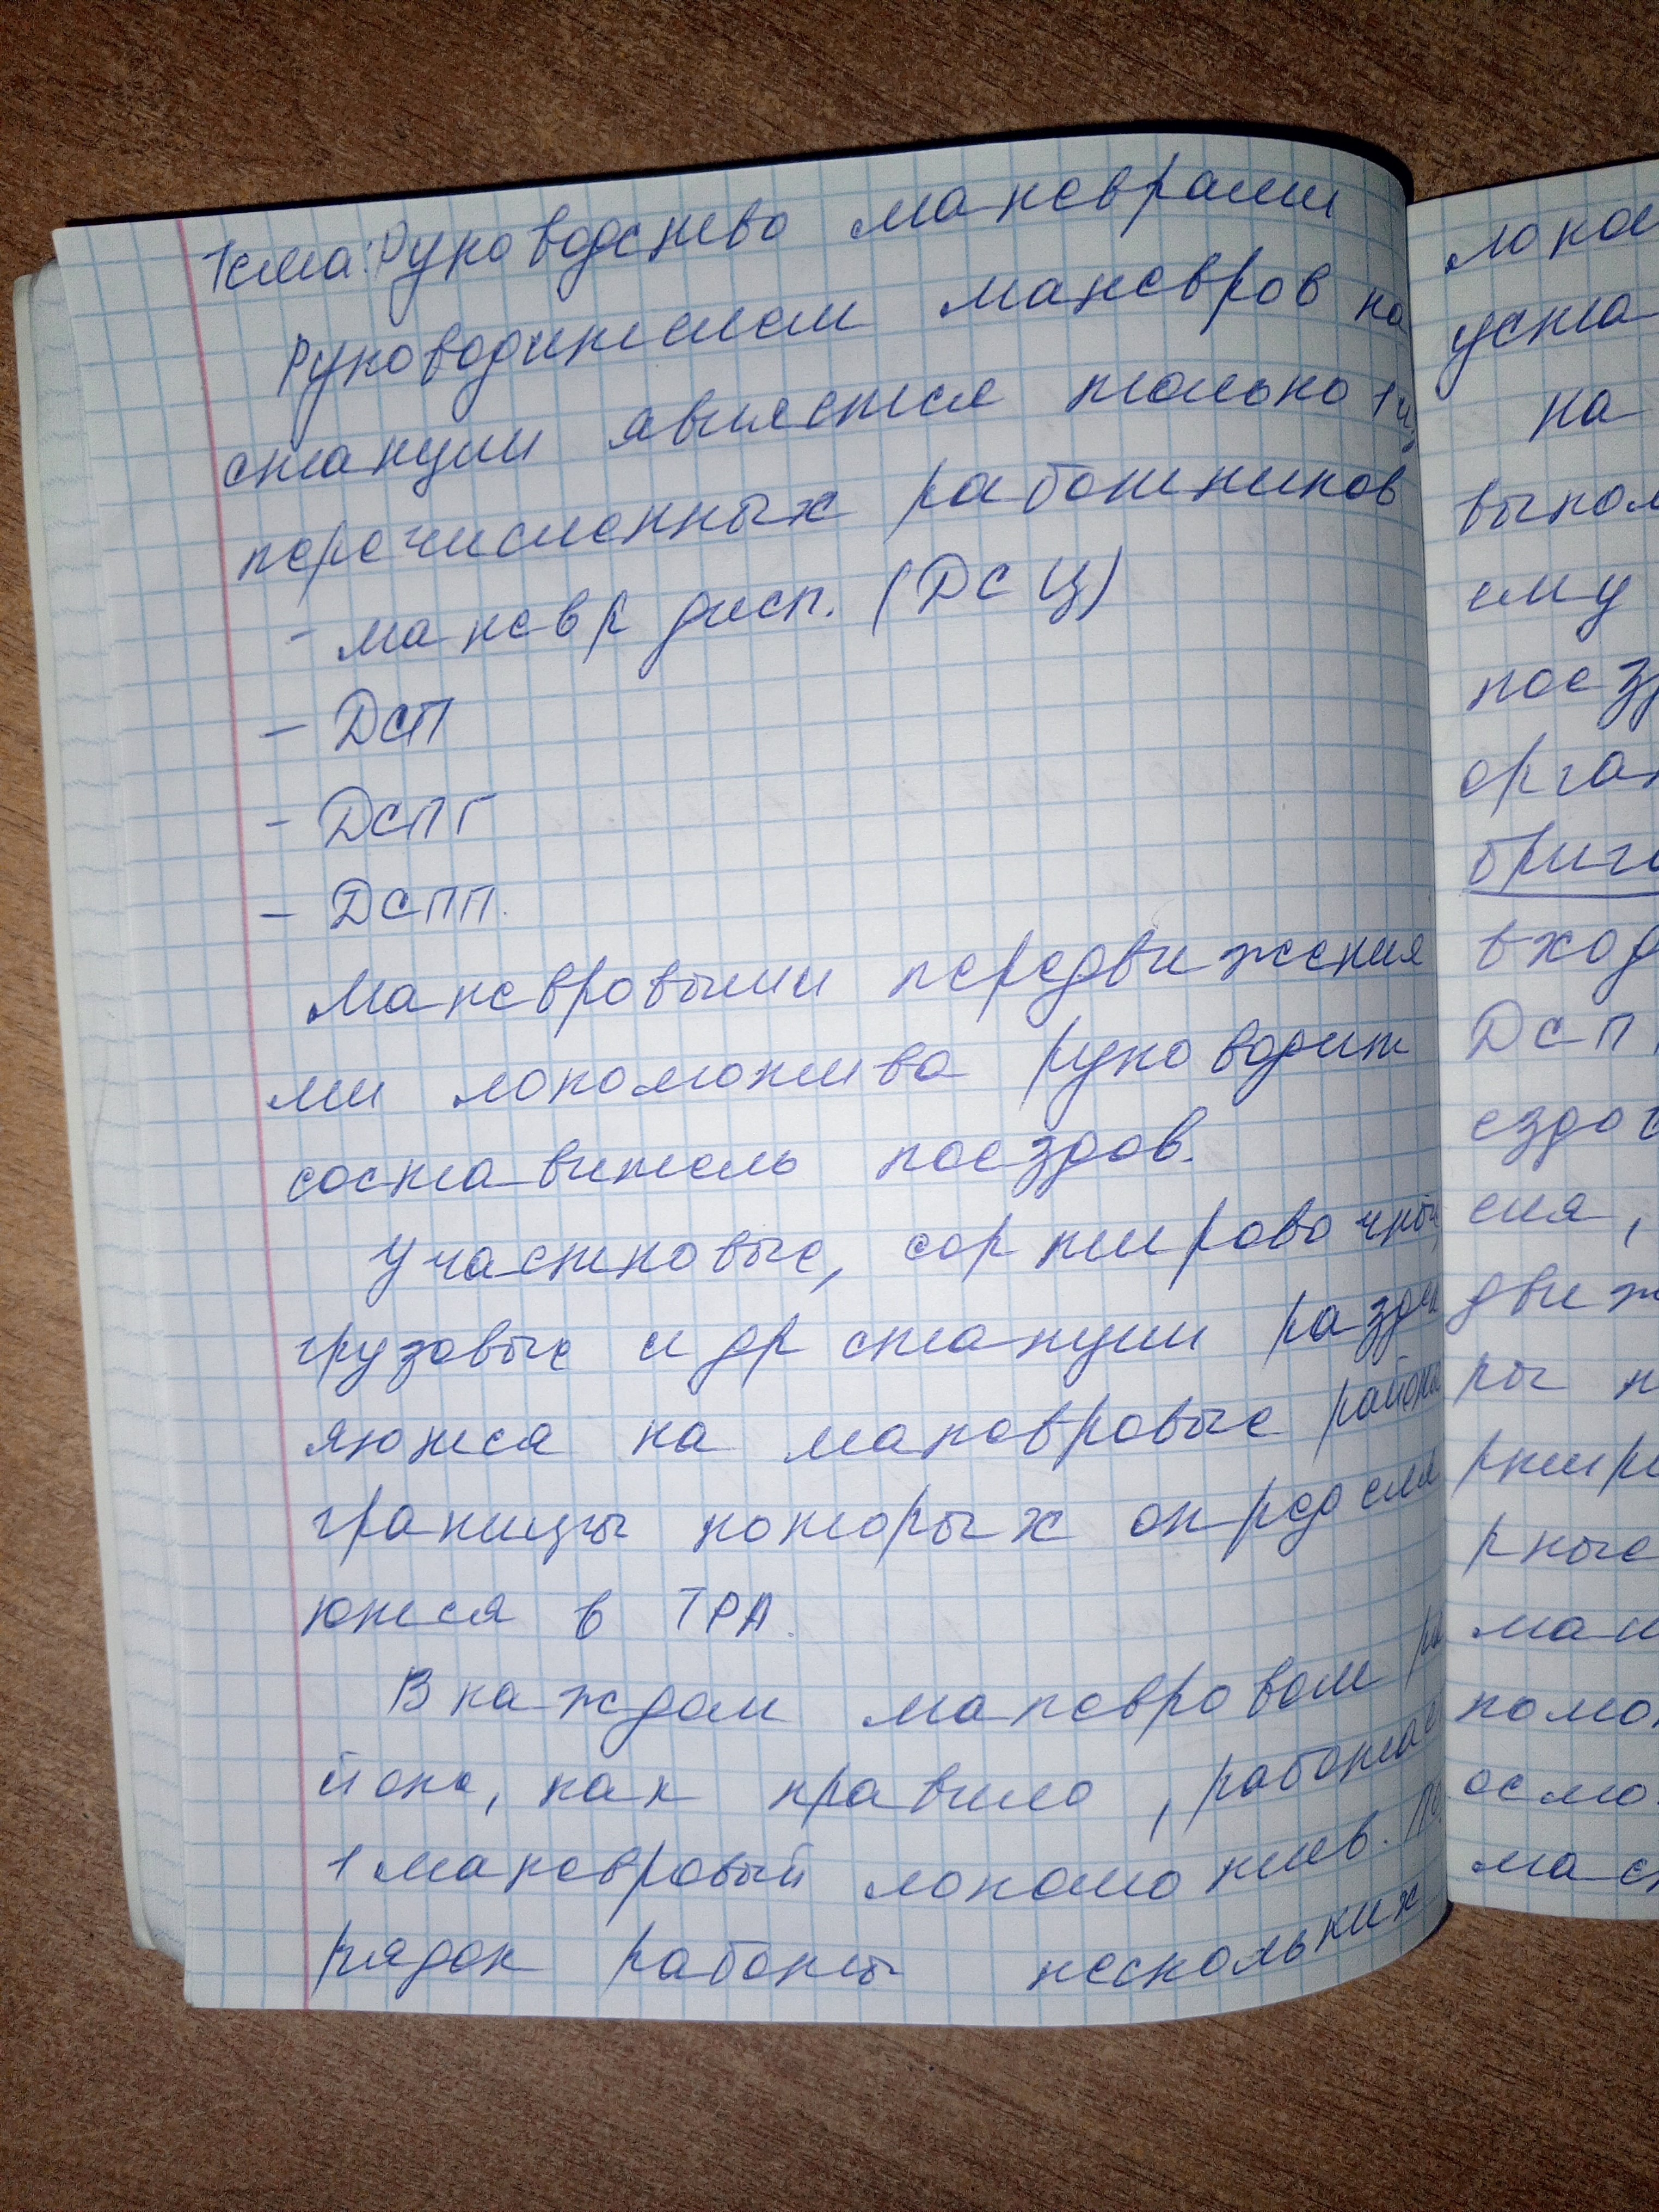 Тема: Руководство маневрами
Руководителем маневров на
станции является только 1 из
перечисленных работников
- маневр дисп. (ДСЦ)
- ДСП
- ДСПГ
- ДСПП.
Маневровыми передвижения
ми локомотива руководит
составитель поездов.
Участковые, сортировочные,
грузовые и др станции раздел
яются на маневровые районы
границы которых определя
ются в ТРА.
В каждом маневровом ра
йоне, как правило, работает
1 маневровый локомотив. По
рядок работы нескольких
локом
уста
на
выпол
ему
поезд
орган
бриг
вход
ДСП
ездов
ся,
движ
ры н
ртир
рные
ман
осмо